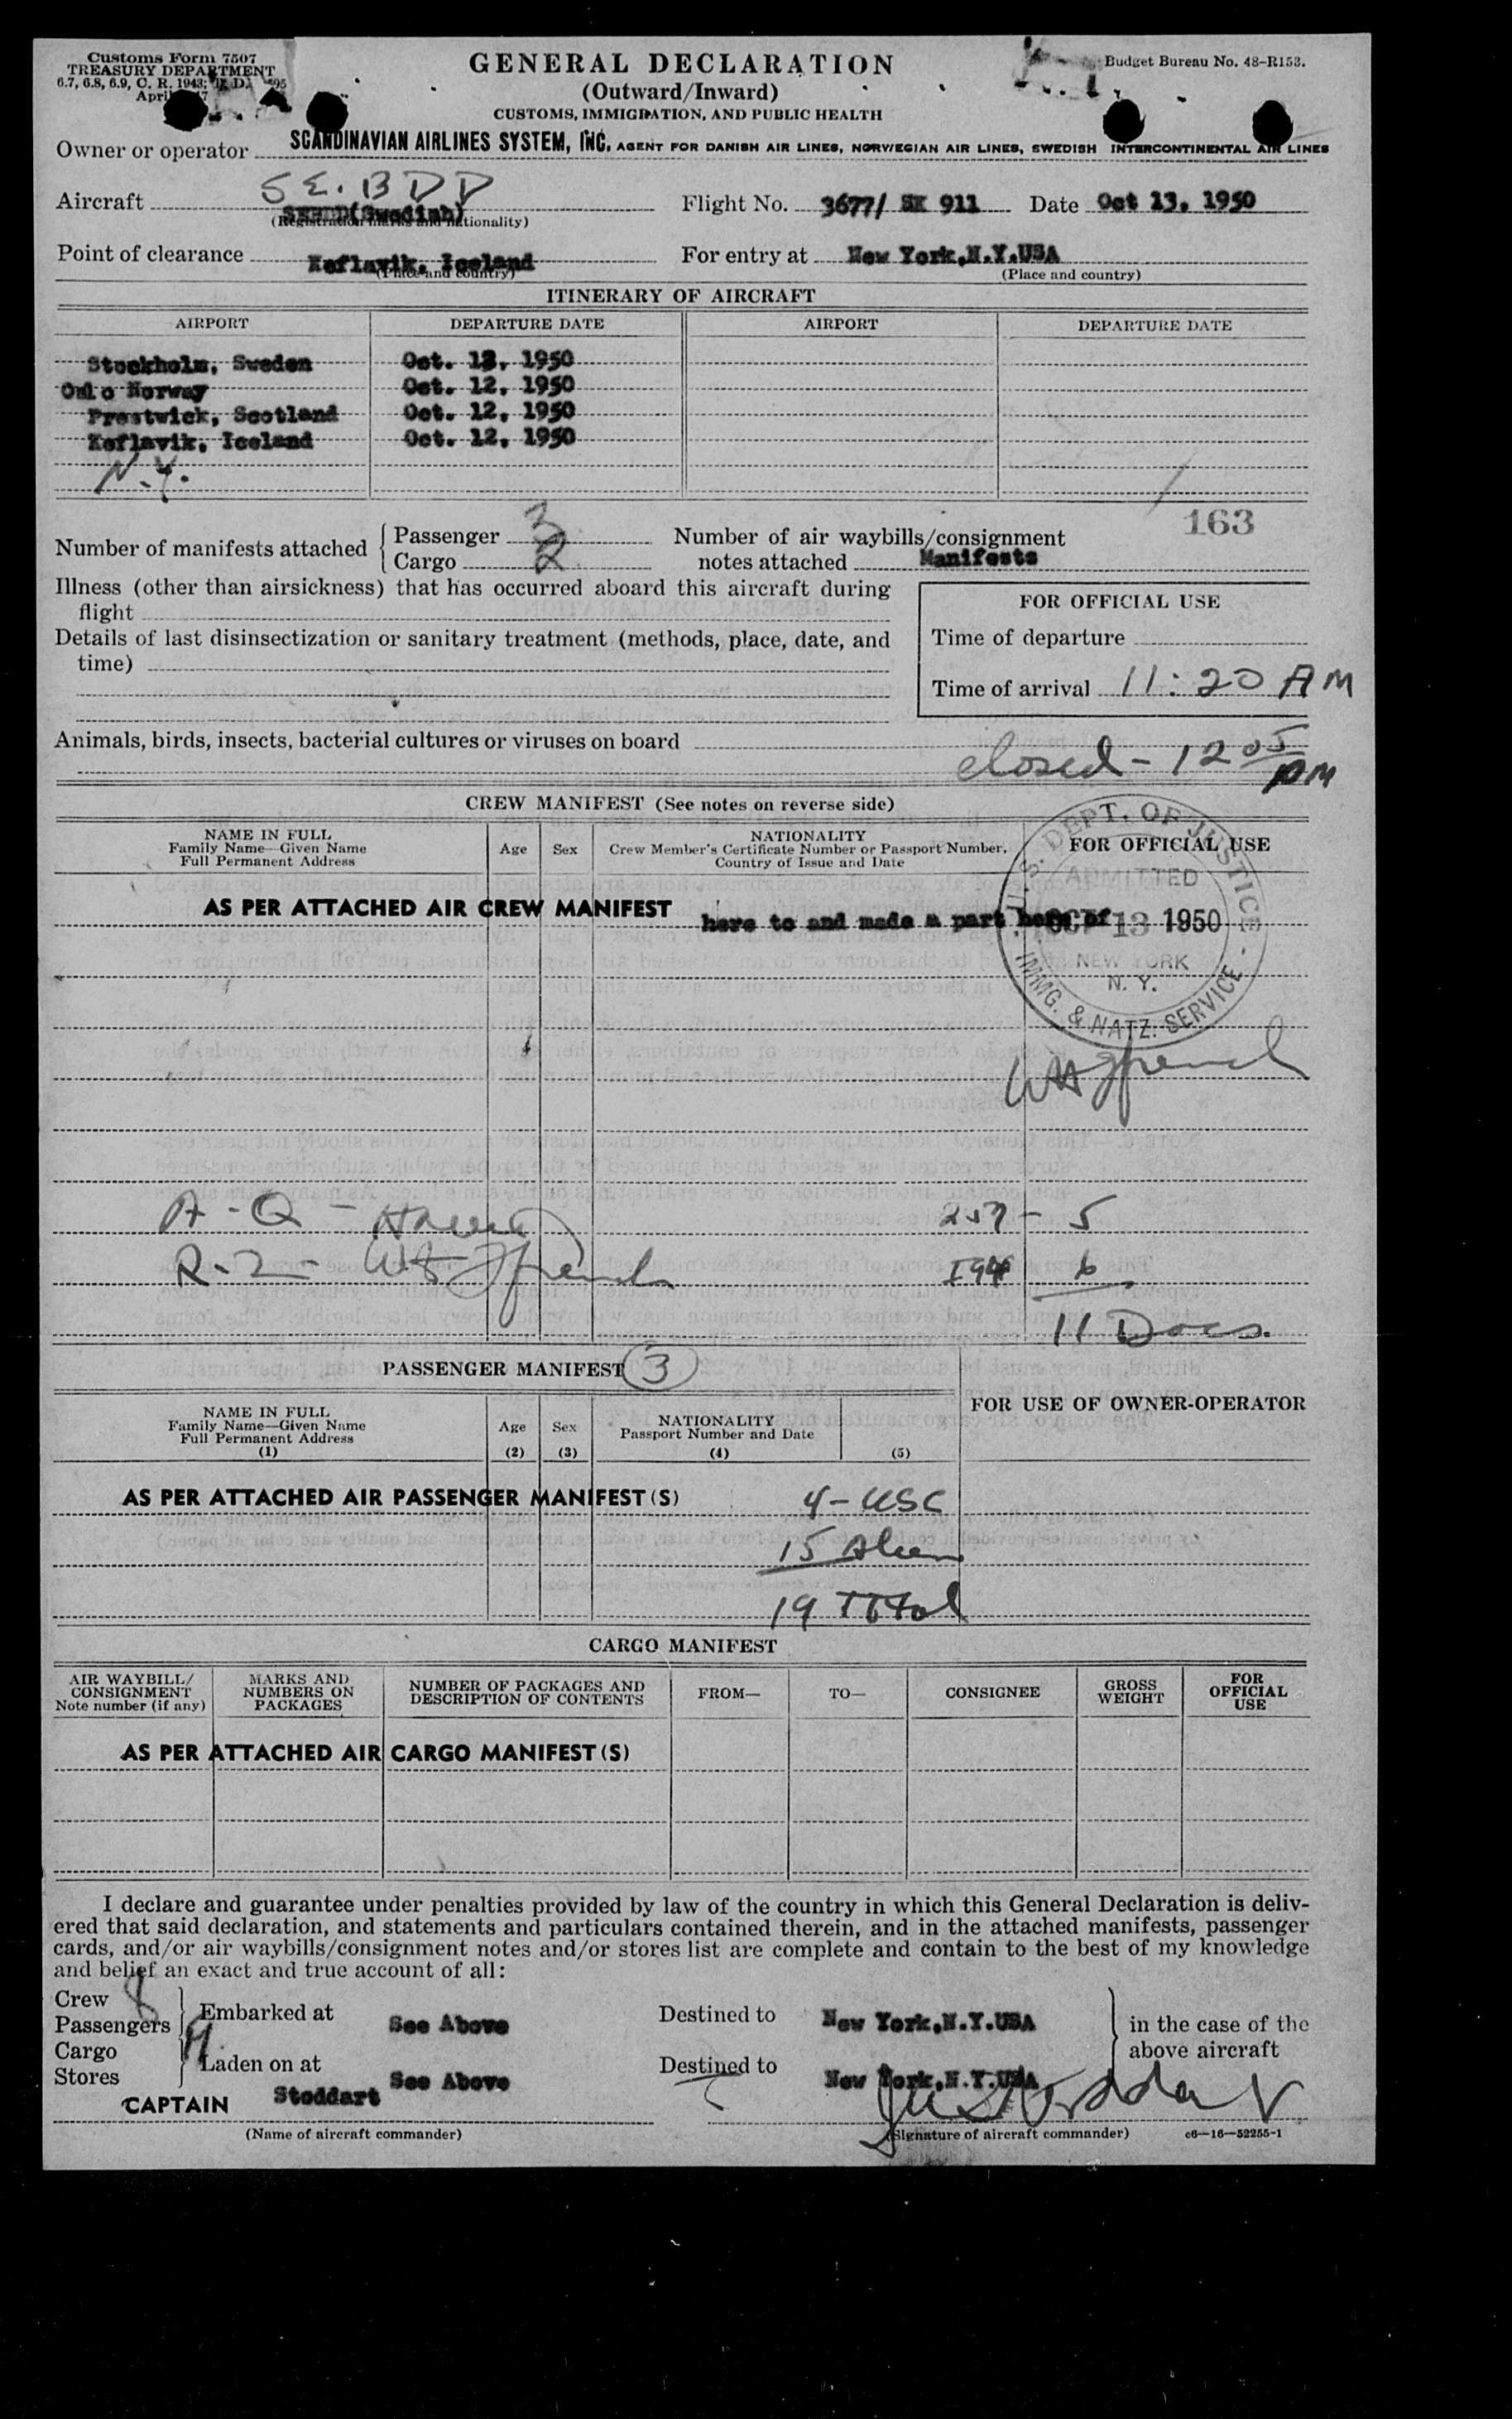 Customs Form 7507
TREASURY DEPARTMENT
6.7, 6.8, 6.9, C. R. 1943; T. D.
April
GENERAL DECLARATION
(Outward/Inward)
CUSTOMS, IMMIGRATION, AND PUBLIC HEALTH
Budget Bureau No. 48-R153.
Owner or operator SCANDINAVIAN AIRLINES SYSTEM, INC. AGENT FOR DANISH AIR LINES, NORWEGIAN AIR LINES, SWEDISH INTERCONTINENTAL AIR LINES
SE.BDD
Aircraft (Swedish) Flight No. 3677/ SK 911 Date Oct 13, 1950
(Registration marks and nationality)
Point of clearance Keflavik, Iceland For entry at New York,N.Y.USA
(Place and country) (Place and country)
ITINERARY OF AIRCRAFT
AIRPORT DEPARTURE DATE AIRPORT DEPARTURE DATE
Stockholm, Sweden Oct. 12, 1950
Oslo Norway Oct. 12, 1950
Prestwick, Scotland Oct. 12, 1950
Keflavik, Iceland Oct. 12, 1950
N.Y.
163
Number of manifests attached Passenger 3 Number of air waybills/consignment
Cargo 2 notes attached Manifests
Illness (other than airsickness) that has occurred aboard this aircraft during
flight
Details of last disinsectization or sanitary treatment (methods, place, date, and
time)
FOR OFFICIAL USE
Time of departure
Time of arrival 11:20 AM
Animals, birds, insects, bacterial cultures or viruses on board
closed - 12 05 PM
CREW MANIFEST (See notes on reverse side)
NAME IN FULL
Family Name—Given Name
Full Permanent Address
Age Sex
NATIONALITY
Crew Member's Certificate Number or Passport Number,
Country of Issue and Date
FOR OFFICIAL USE
AS PER ATTACHED AIR CREW MANIFEST here to and made a part here of
U. S. DEPT. OF JUSTICE
ADMITTED
OCT 13 1950
NEW YORK
N. Y.
IMMG. & NATZ. SERVICE
A-Q - 257 - 5
R-Z - I94 6
11 Docs.
PASSENGER MANIFEST 3
NAME IN FULL
Family Name—Given Name
Full Permanent Address
(1)
Age
(2)
Sex
(3)
NATIONALITY
Passport Number and Date
(4)
(5)
FOR USE OF OWNER-OPERATOR
AS PER ATTACHED AIR PASSENGER MANIFEST(S) 4-USC
15 Alien
19 Total
CARGO MANIFEST
AIR WAYBILL/
CONSIGNMENT
Note number (if any)
MARKS AND
NUMBERS ON
PACKAGES
NUMBER OF PACKAGES AND
DESCRIPTION OF CONTENTS
FROM— TO— CONSIGNEE
GROSS
WEIGHT
FOR
OFFICIAL
USE
AS PER ATTACHED AIR CARGO MANIFEST(S)
I declare and guarantee under penalties provided by law of the country in which this General Declaration is deliv-
ered that said declaration, and statements and particulars contained therein, and in the attached manifests, passenger
cards, and/or air waybills/consignment notes and/or stores list are complete and contain to the best of my knowledge
and belief an exact and true account of all:
Crew 8
Passengers 19
Cargo
Stores
Embarked at See Above Destined to New York,N.Y.USA
in the case of the
above aircraft
Laden on at See Above Destined to New York,N.Y.USA
CAPTAIN Stoddart
(Name of aircraft commander) (Signature of aircraft commander) c6—16—52255-1